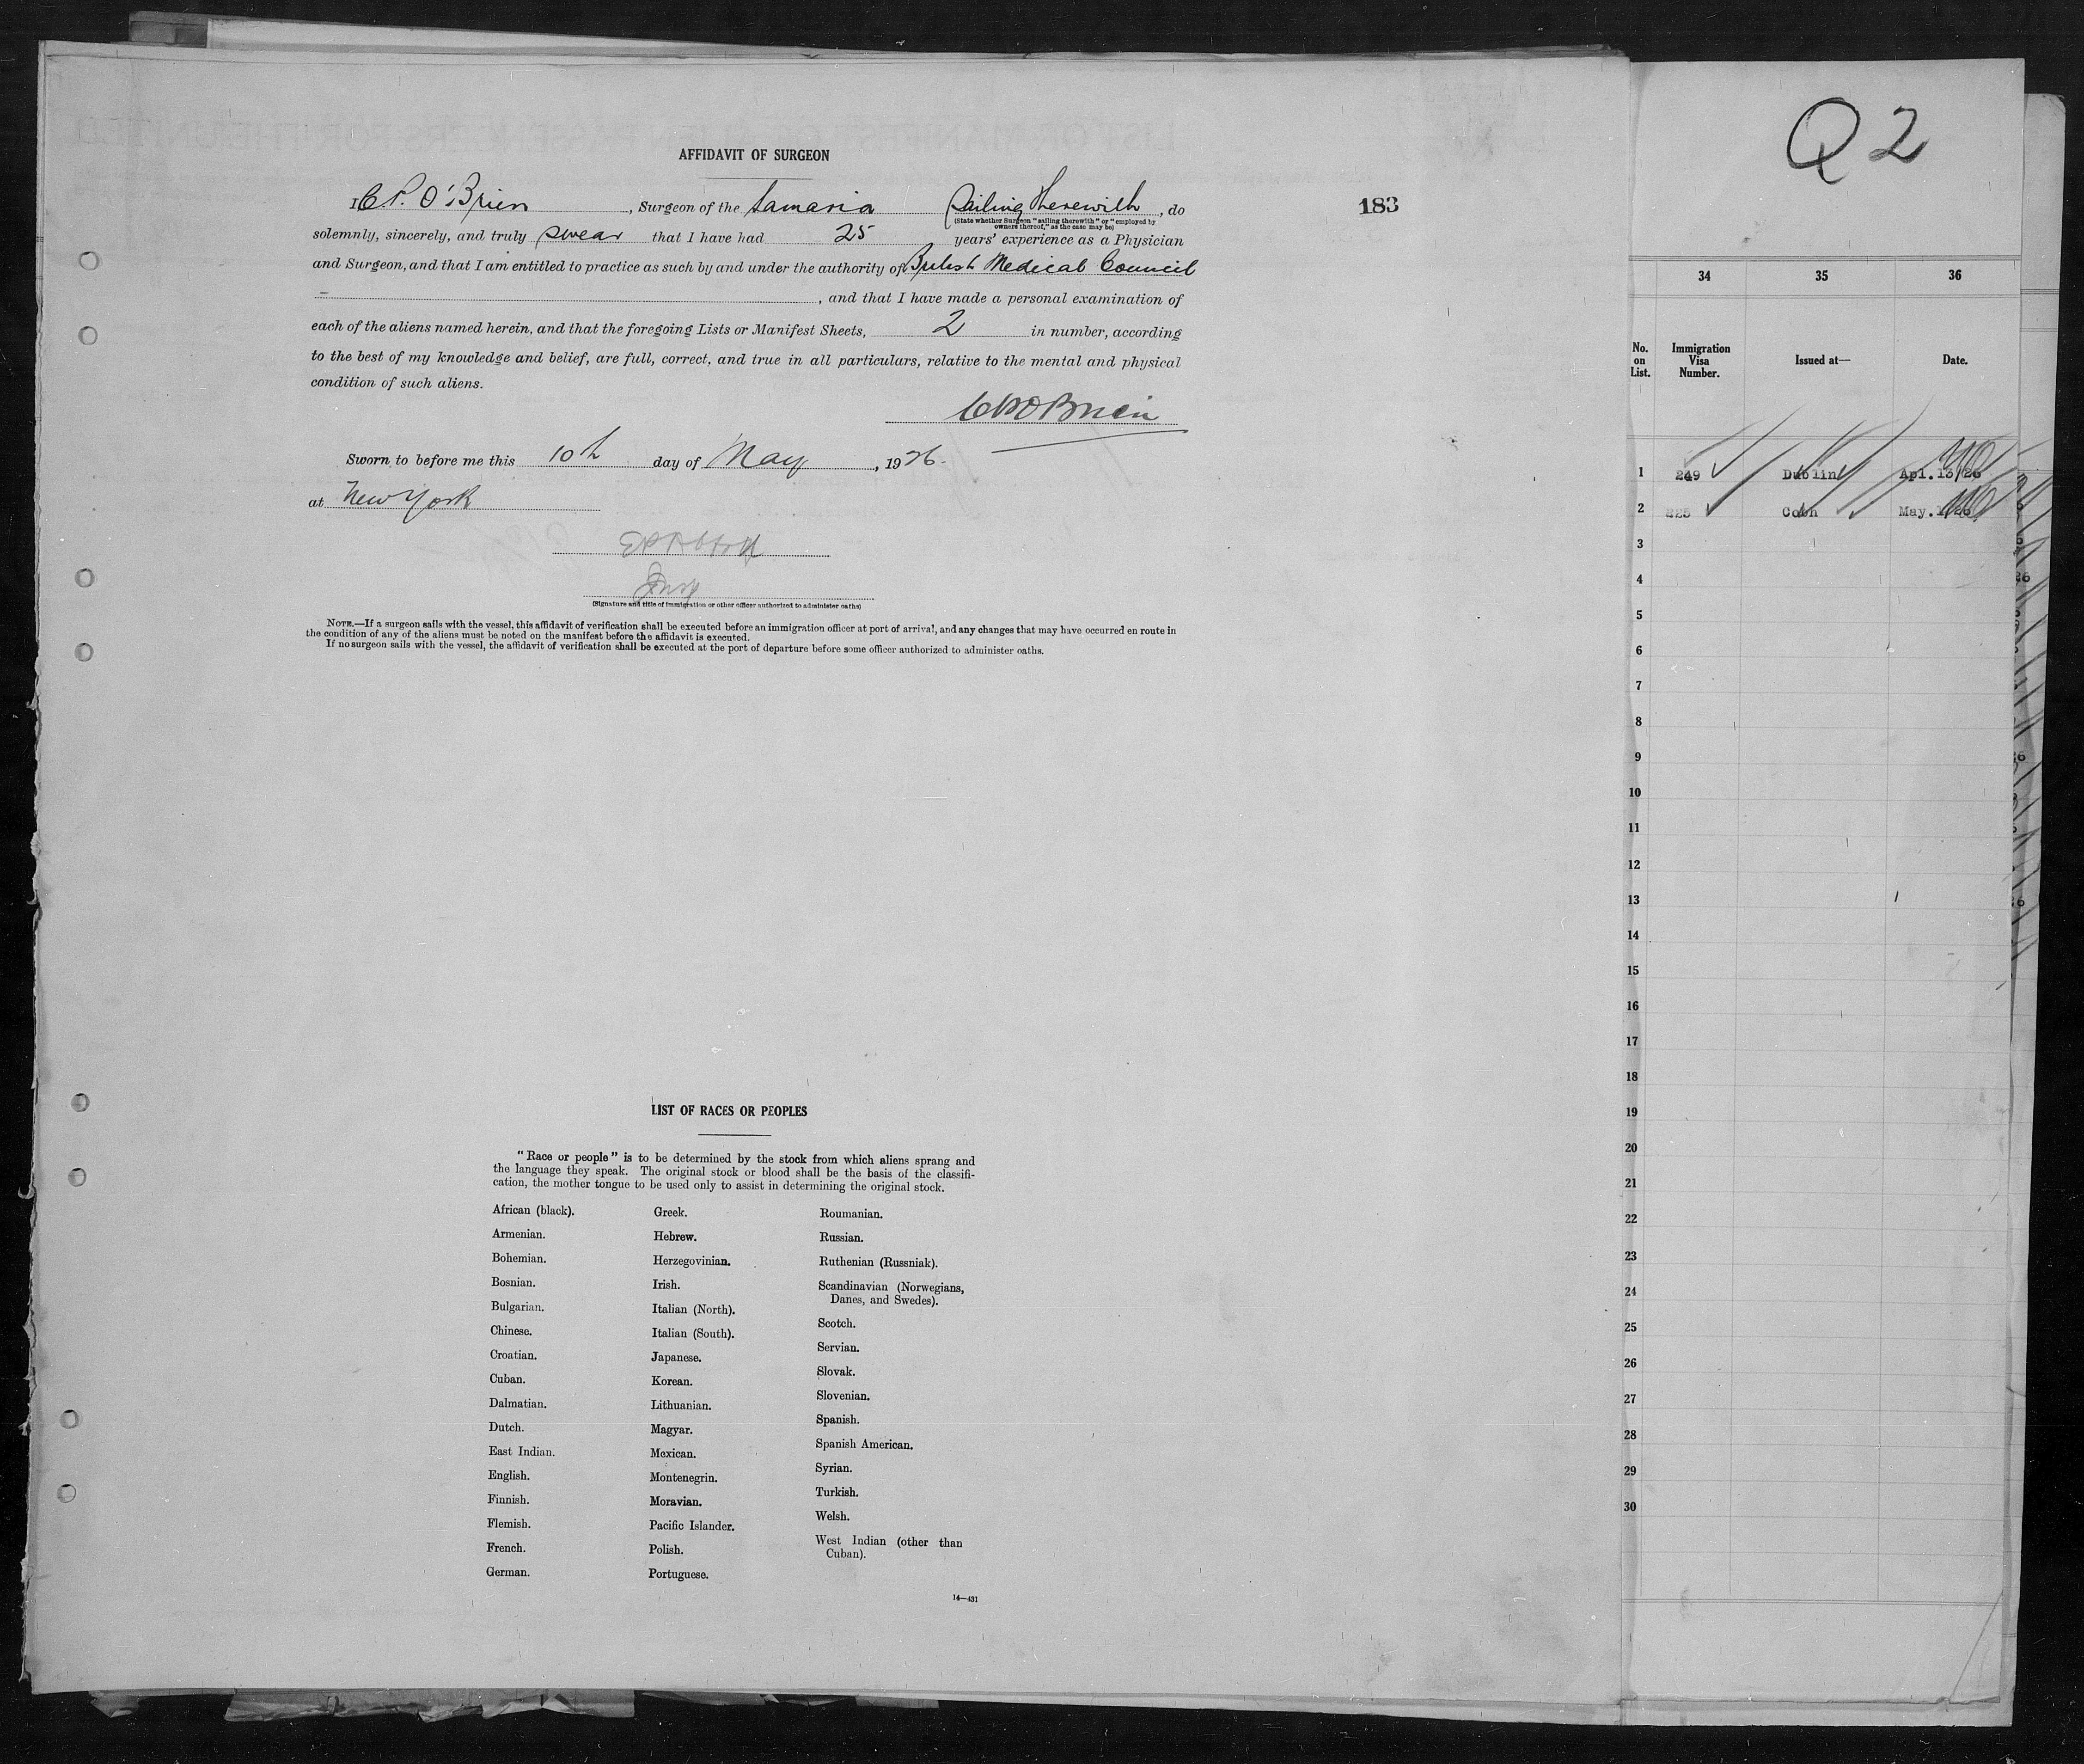 AFFIDAVIT OF SURGEON
I C P. O'Brien, Surgeon of the Samaria Sailing Therewith, do
(State whether Surgeon "sailing therewith" or "employed by
owners thereof," as the case may be)
solemnly, sincerely, and truly swear that I have had 25 years' experience as a Physician
and Surgeon, and that I am entitled to practice as such by and under the authority of British Medical Council
, and that I have made a personal examination of
each of the aliens named herein, and that the foregoing Lists or Manifest Sheets, 2 in number, according
to the best of my knowledge and belief, are full, correct, and true in all particulars, relative to the mental and physical
condition of such aliens.
C P O'Brien
Sworn to before me this 10th day of May, 1926.
at New York
(Signature and title of immigration or other officer authorized to administer oaths)
NOTE.—If a surgeon sails with the vessel, this affidavit of verification shall be executed before an immigration officer at port of arrival, and any changes that may have occurred en route in
the condition of any of the aliens must be noted on the manifest before the affidavit is executed.
If no surgeon sails with the vessel, the affidavit of verification shall be executed at the port of departure before some officer authorized to administer oaths.
LIST OF RACES OR PEOPLES
"Race or people" is to be determined by the stock from which aliens sprang and
the language they speak. The original stock or blood shall be the basis of the classifi-
cation, the mother tongue to be used only to assist in determining the original stock.
African (black).
Armenian.
Bohemian.
Bosnian.
Bulgarian.
Chinese.
Croatian.
Cuban.
Dalmatian.
Dutch.
East Indian.
English.
Finnish.
Flemish.
French.
German.
Greek.
Hebrew.
Herzegovinian.
Irish.
Italian (North).
Italian (South).
Japanese.
Korean.
Lithuanian.
Magyar.
Mexican.
Montenegrin.
Moravian.
Pacific Islander.
Polish.
Portuguese.
Roumanian.
Russian.
Ruthenian (Russniak).
Scandinavian (Norwegians,
Danes, and Swedes).
Scotch.
Servian.
Slovak.
Slovenian.
Spanish.
Spanish American.
Syrian.
Turkish.
Welsh.
West Indian (other than
Cuban).
14—431
183
Q 2
34 35 36
No. on List. Immigration Visa Number. Issued at— Date.
1 249 Dublin Apl. 13/26
2 225 Cobh May.
3
4
5
6
7
8
9
10
11
12
13
14
15
16
17
18
19
20
21
22
23
24
25
26
27
28
29
30